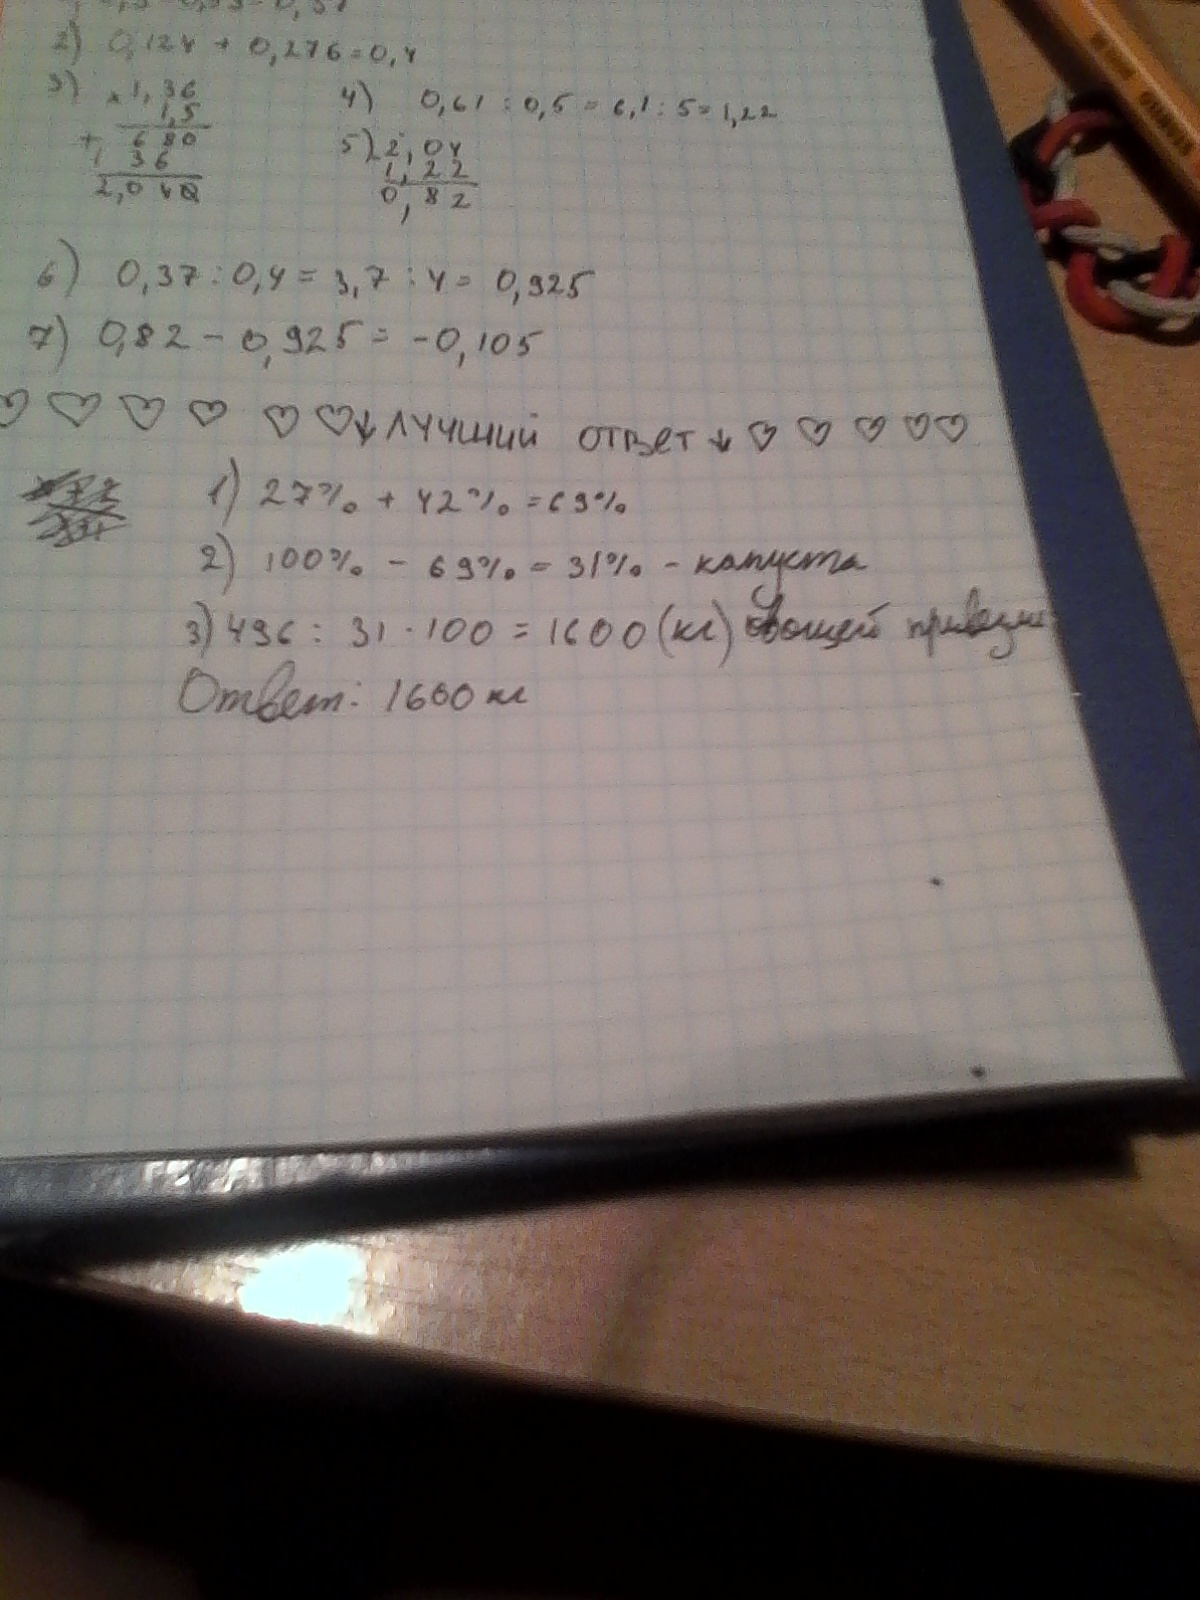 2) 0,124 + 0,276=0,4
3) × 1,36
1,5
+ 680
1 36
2,040
4) 0,61 : 0,5 = 6,1 : 5= 1,22
5) - 2,04
1,22
0,82
6) 0,37 : 0,4 = 3,7 : 4 = 0,925
7) 0,82 - 0,925 = -0,105
♡ ♡ ♡ ♡ ♡ ♡ ↓ ЛУЧШИЙ ОТВЕТ ↓ ♡ ♡ ♡ ♡ ♡
1) 27% + 42% = 69%
2) 100% - 69% = 31% - капуста
3) 496 : 31 · 100 = 1600 (кг) овощей привезли
Ответ: 1600 кг